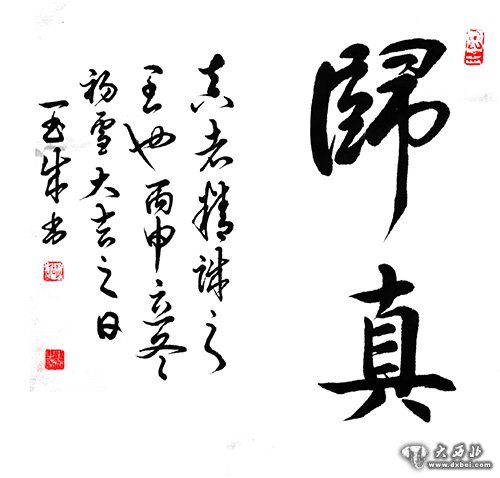 歸真
真者精诚之
至也丙申立冬
初雪大吉之日
成书
大西北
www.dxbei.com